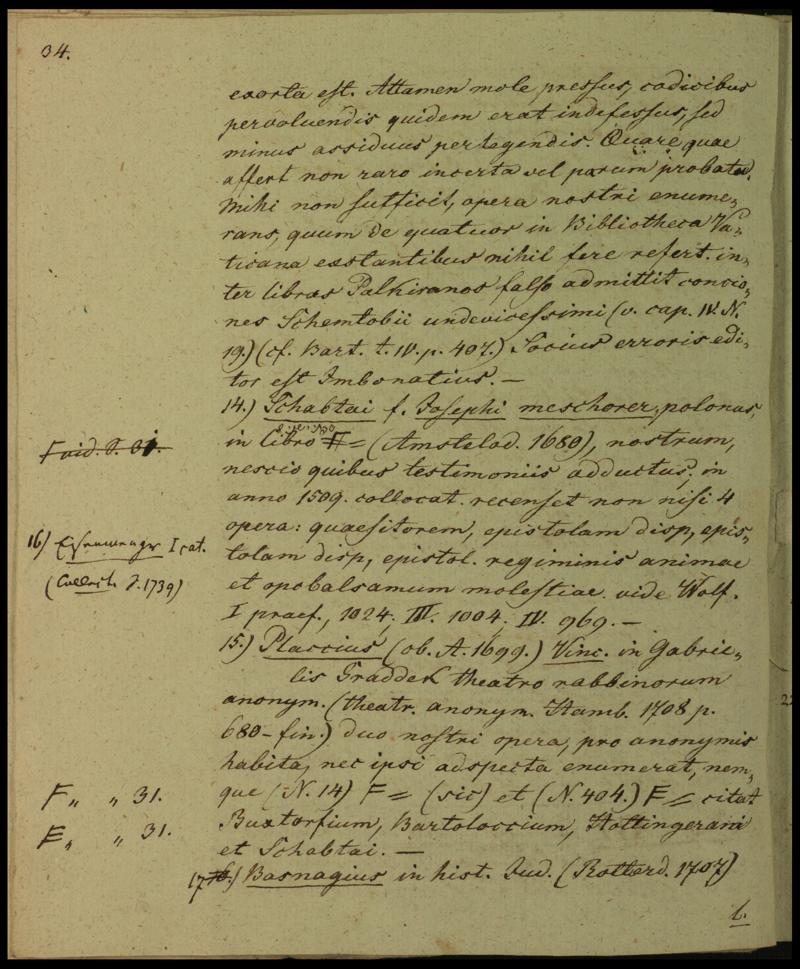 34.
exorta est. Attamen mole pressus, codicibus
pervoluendis quidem erat indefessus, sed
minus assiduus pertegendis. Quare quae
affert non raro incerta vel parum probata.
Mihi non sufficit, opera nostri enume,
rans, quum de quatuor in Bibliotheca Va,
ticana exstantibus nihil fere refert. in,
ter libros Palkiranos falso admittit concio,
nes Schemtobii undevicessimi (v. cap. IV. N.
19.) (cf. Bart. t. IV. p. 407.) Socius erroris edi,
tor est Imbonatius. —
14.) Schabtai f. Josephi meschorer, polonus,
in libro F= (Amstelod. 1680), nostrum,
nescio quibus testimoniis adductus, in
anno 1509. collocat. recenset non nisi 4
opera: quaesitorem, epistolam disp, epis,
tolam disp, epistol. regiminis animae
et opobalsamum molestiae. vide Wolf.
I praef., 1024, III. 1004, IV. 969. —
15.) Placcius (ob. A. 1699.) Vinc. in Gabrie,
lis Graddek theatro rabbinorum
anonym. (theatr. anonym. Hamb. 1708 p.
680 - fin.) duo nostri opera, pro anonymis
habita, nec ipsi adspecta enumerat, nem,
que (N. 14) F= (sic) et (N. 404.) F= citat
Buxtorfium, Bartoloccium, Hottingerum
et Schabtai. —
17.) Basnagius in hist. Jud. (Rotterd. 1707)
l.
F vid. S. 31.
16) I cat.
( S. 1739)
F,, ,, 31.
F,, ,, 31.